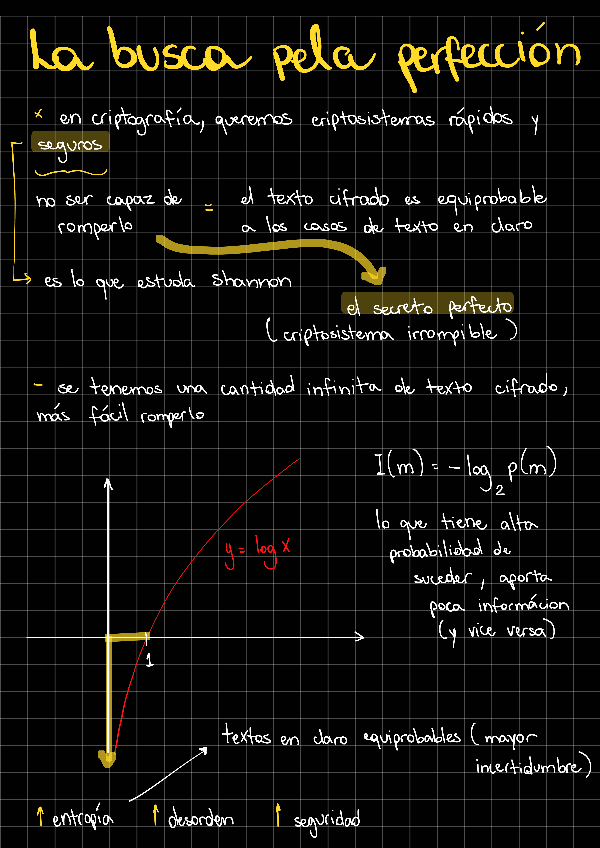 La busca pela perfección
x en criptografía, queremos criptosistemas rápidos y
seguros
no ser capaz de = el texto cifrado es equiprobable
romperlo a los casos de texto en claro
es lo que estuda Shannon
el secreto perfecto
(criptosistema irrompible)
- se tenemos una cantidad infinita de texto cifrado,
más fácil romperlo
I(m) = -log₂ p(m)
y = log x
lo que tiene alta
probabilidad de
suceder, aporta
poca informácion
(y vice versa)
1
textos en claro equiprobables (mayor
incertidumbre)
↑ entropía ↑ desorden ↑ seguridad